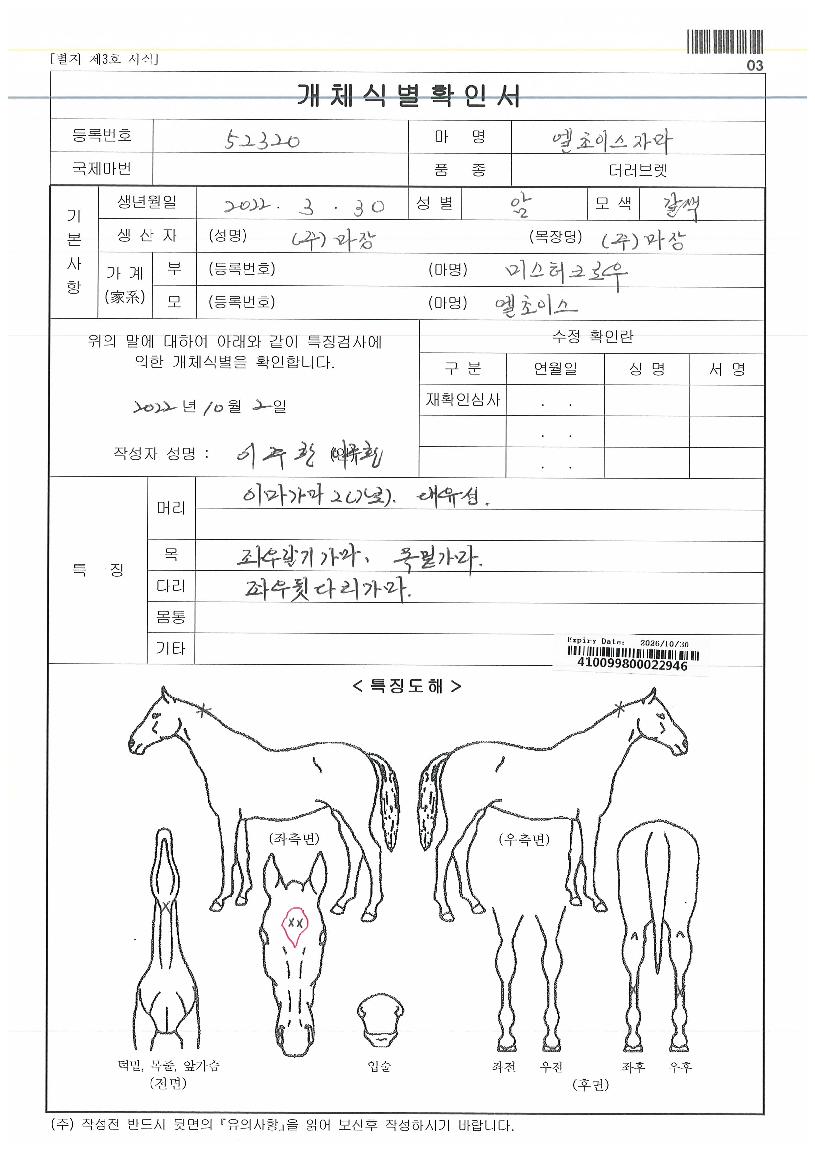 [별지 제3호 서식]
03
개체식별확인서
등록번호 52320 마 명 엘초이스자마
국제마번 품 종 더러브렛
기본사항
생년월일 2022. 3. 30 성별 암 모색 갈색
생산자 (성명) (주)마장 (목장명) (주)마장
가계(家系) 부 (등록번호) (마명) 미스터크로우
모 (등록번호) (마명) 엘초이스
위의 말에 대하여 아래와 같이 특징검사에
의한 개체식별을 확인합니다.
2022년 10월 2일
작성자 성명 : 이주환
수정 확인란
구 분 연월일 성 명 서 명
재확인심사 . .
. .
. .
특 징
머리 이마가마 2(나란). 대유성.
목 좌우갈기가마, 목밑가마.
다리 좌우뒷다리가마.
몸통
기타
Expiry Date: 2026/10/30
410099800022946
< 특징도해 >
(좌측면) (우측면)
턱밑, 목줄, 앞가슴
(전면)
입술
좌전 우전 좌후 우후
(후면)
(주) 작성전 반드시 뒷면의 『유의사항』을 읽어 보신후 작성하시기 바랍니다.